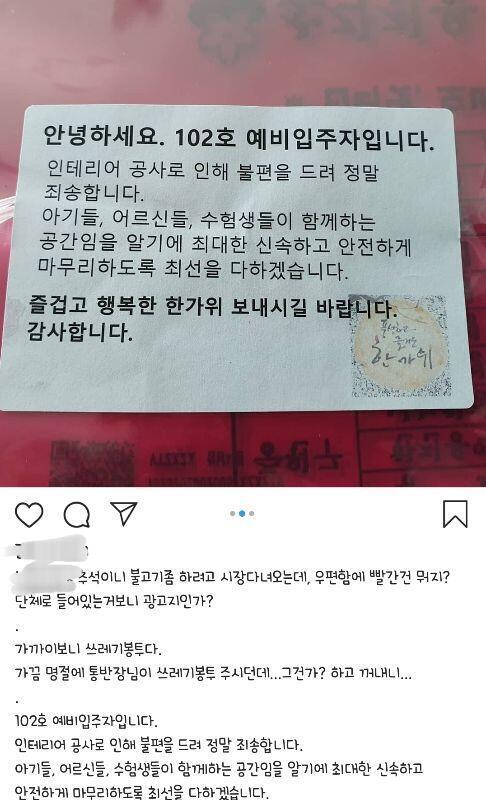 안녕하세요. 102호 예비입주자입니다.
인테리어 공사로 인해 불편을 드려 정말
죄송합니다.
아기들, 어르신들, 수험생들이 함께하는
공간임을 알기에 최대한 신속하고 안전하게
마무리하도록 최선을 다하겠습니다.
즐겁고 행복한 한가위 보내시길 바랍니다.
감사합니다.
즐거운
한가위
추석이니 불고기좀 하려고 시장다녀오는데, 우편함에 빨간건 뭐지?
단체로 들어있는거보니 광고지인가?
.
가까이보니 쓰레기봉투다.
가끔 명절에 통반장님이 쓰레기봉투 주시던데...그건가? 하고 꺼내니...
.
102호 예비입주자입니다.
인테리어 공사로 인해 불편을 드려 정말 죄송합니다.
아기들, 어르신들, 수험생들이 함께하는 공간임을 알기에 최대한 신속하고
안전하게 마무리하도록 최선을 다하겠습니다.